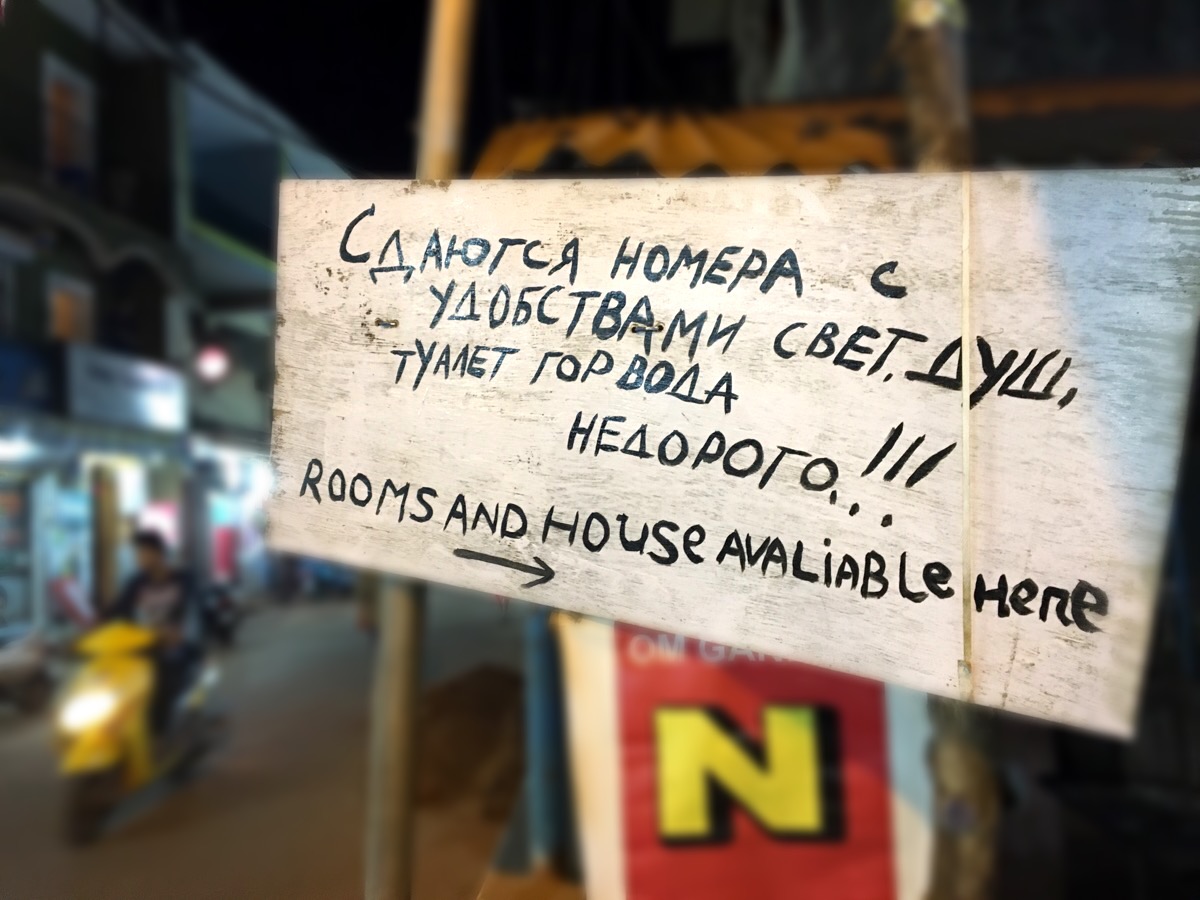 Сдаются номера с
удобствами свет, душ,
туалет гор вода
недорого...!!!
ROOMS AND HOUSE AVALiABLe Here
→
OM GAN
N